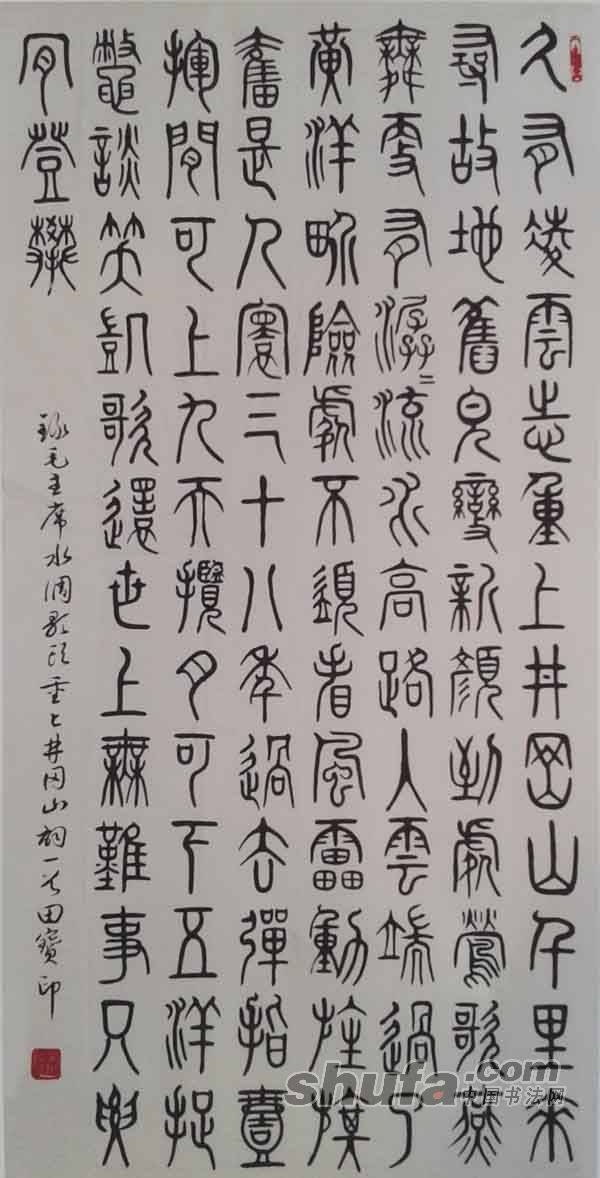 久有凌雲志重上井岡山千里來
尋故地舊皃變新顏到處鶯歌燕
舞更有潺〻流水高路入雲端過了
黃洋界險處不須看風雷動旌旗
奮是人寰三十八年過去彈指壹
揮間可上九天攬月可下五洋捉
鱉談笑凱歌還世上無難事只要
肯登攀
錄毛主席水調歌頭重上井岡山詞一首田寶印
shufa.com
中国书法网